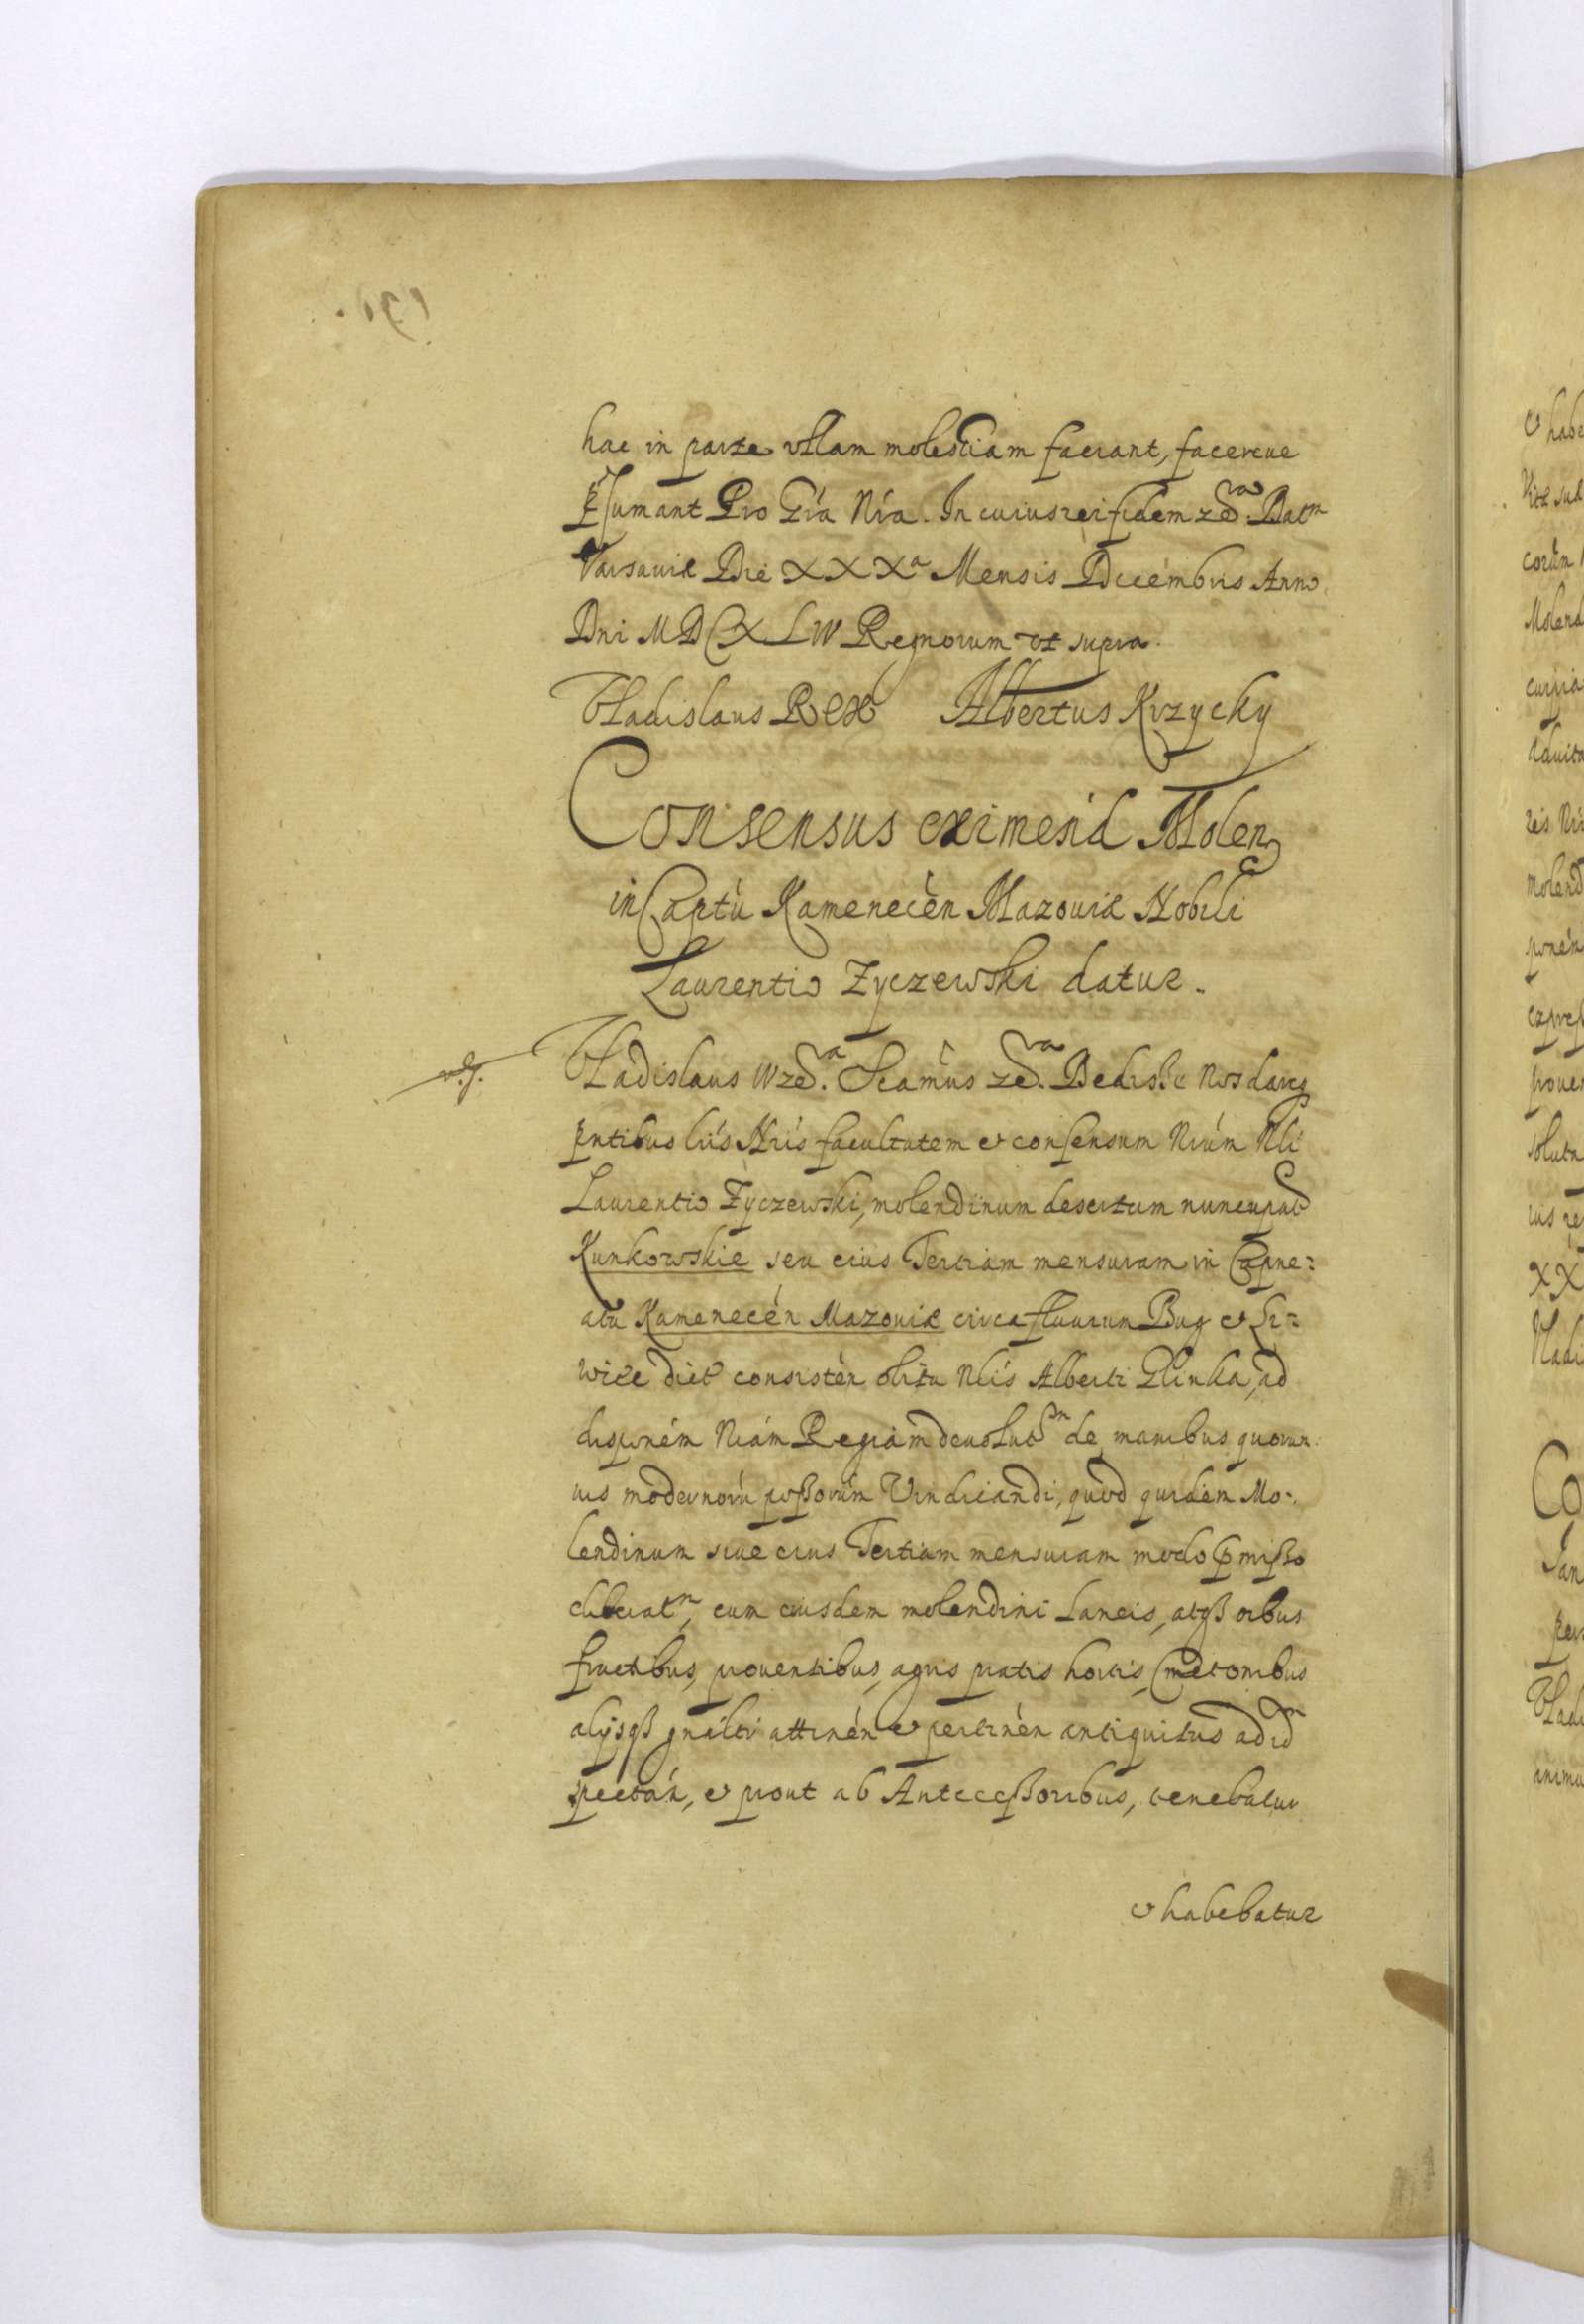 hac in parte vllam molestiam faciant, facereue
p̄sumant Pro Gr̃a Nr̃a. In cuius rei fidem ze͠ra. Datm
Varsauiæ Die XXXa Mensis Decembris Anno
Dni MDCXLIV Regnorum vt supra.
Vladislaus Rex Albertus Krzycky
Consensus eximen̄d Molen̄
in Captu Kameneceń Mazouiæ Nobili
Laurentio Zyczewski datur.
Vladislaus IV ze͠ra. Sc̃amus ze͠ra. Dedisse Nos dareq
p̄ntibus lr̃is Nr̃is facultatem et consensum Nr̃um Nli
Laurentio Zyczewski, molendinum desertum nuncupat
Kunkowskie seu eius Tertiam mensuram in Capne:
atu Kameneceń Mazouiæ circa fluuium Bug et
dict consisteń obitu Nlis Alberti Glinka, ad
disp̃onem Nr̃am Regiam deuolutm de manibus quorum
uis modernorũ poßorũm Vindicandi, quod quidem Mo:
lendinum siue eius Tertiam mensuram modo p̃mißo
liberatm, cum eiusdem molendini Laneis, atqß oĩbus
fructibus, prouentibus, agris pratis hortis, Cmetonibus
alijsqß gñalti attineń et pertineń antiquitus ad id
spectań, et prout ab Antecessoribus, tenebatur
et habebatur